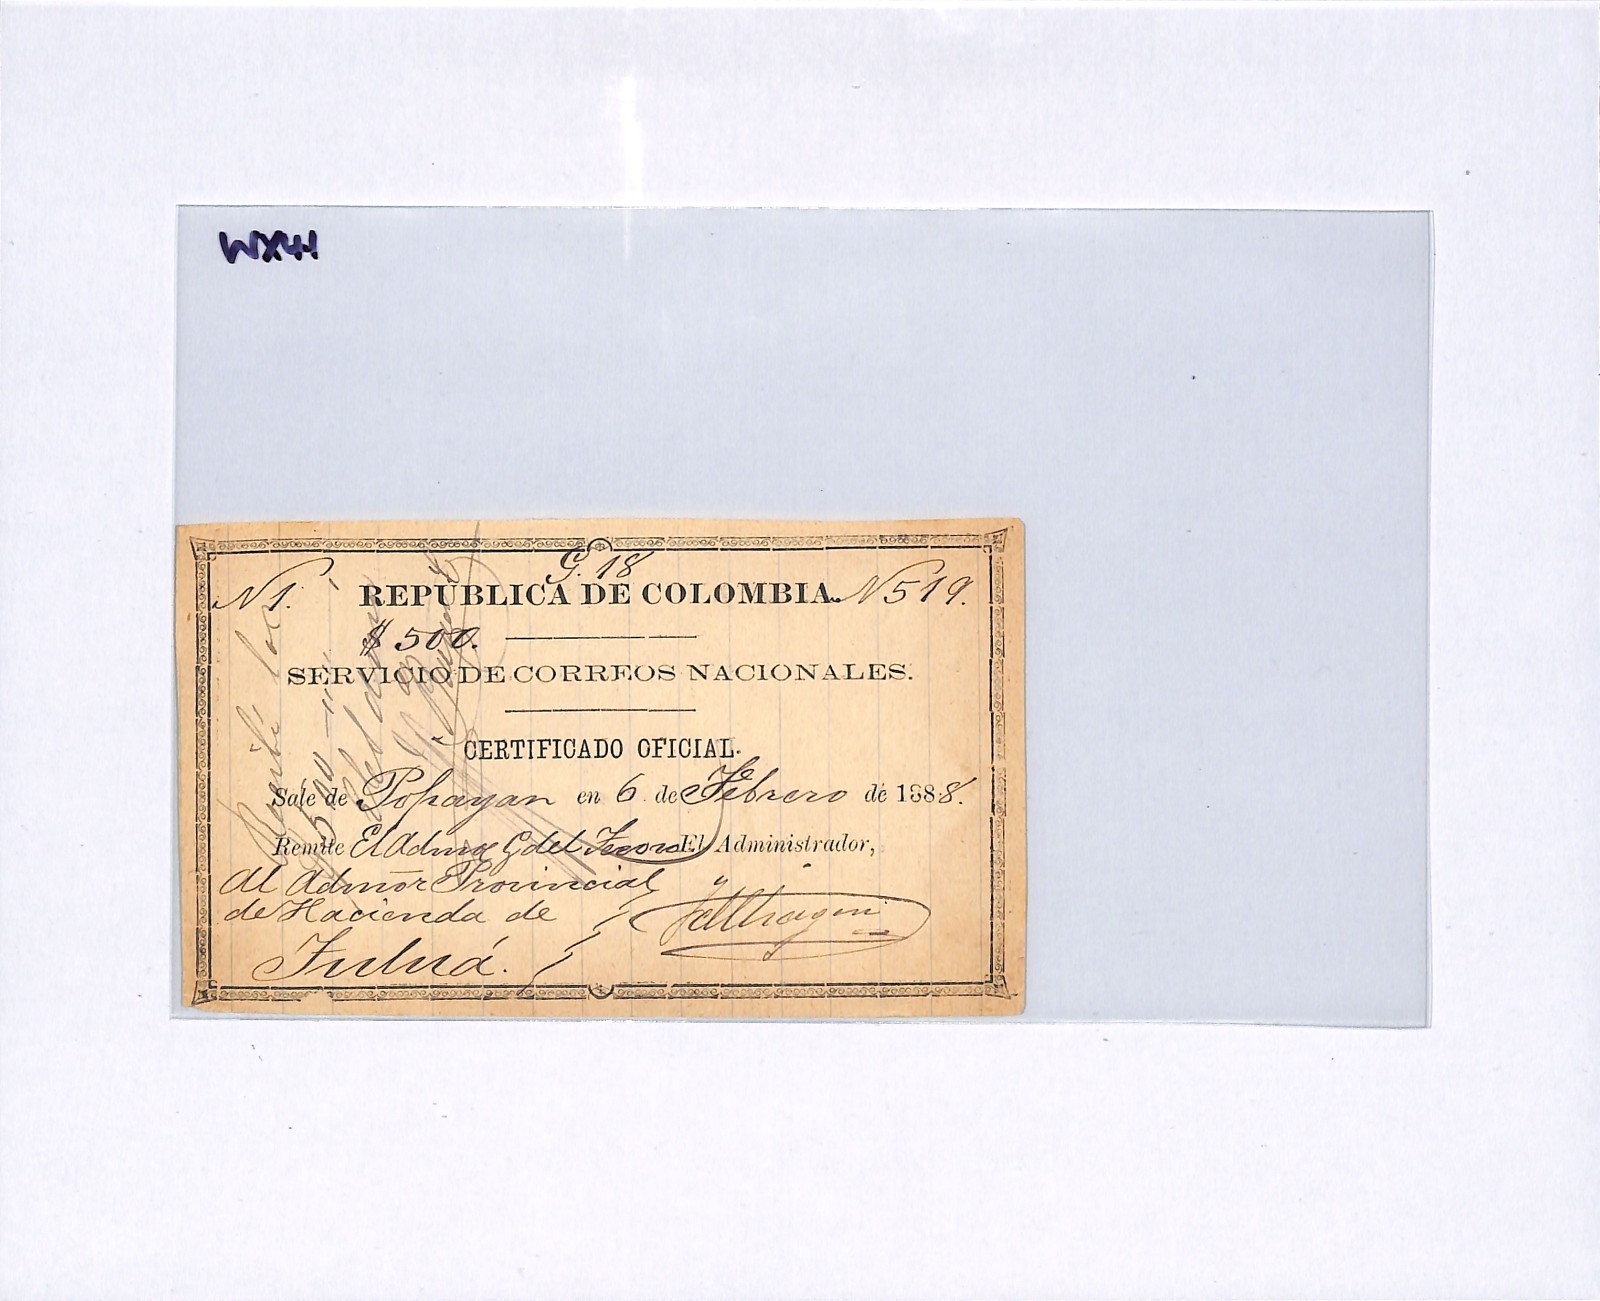 WX41
G. 18
N 1. REPUBLICA DE COLOMBIA. N 519.
$ 500.
SERVICIO DE CORREOS NACIONALES.
CERTIFICADO OFICIAL.
Sale de Popayan en 6 de Febrero de 1888.
Remite El Admor G del Tesoro El Administrador,
Al Admor Provincial
de Hacienda de
Tuluá.
Recibí los
500
del